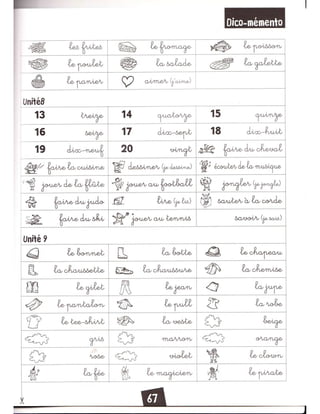 Dico-mémento
les frites le fromage le poisson
le poulet la salade la galette
le panier aimer (j'aime)
Unité 8
13 treize 14 quatorze 15 quinze
16 seize 17 dix-sept 18 dix-huit
19 dix-neuf 20 vingt faire du cheval
faire la cuisine dessiner (je dessine) écouter de la musique
jouer de la flûte jouer au football jongler (je jongle)
faire du judo lire (je lis) sauter à la corde
faire du ski jouer au tennis savoir (je sais)
Unité 9
le bonnet la botte le chapeau
la chaussette la chaussure la chemise
le gilet le jean la jupe
le pantalon le pull la robe
le tee-shirt la veste beige
gris marron orange
rose violet le clown
la fée le magicien le pirate
67